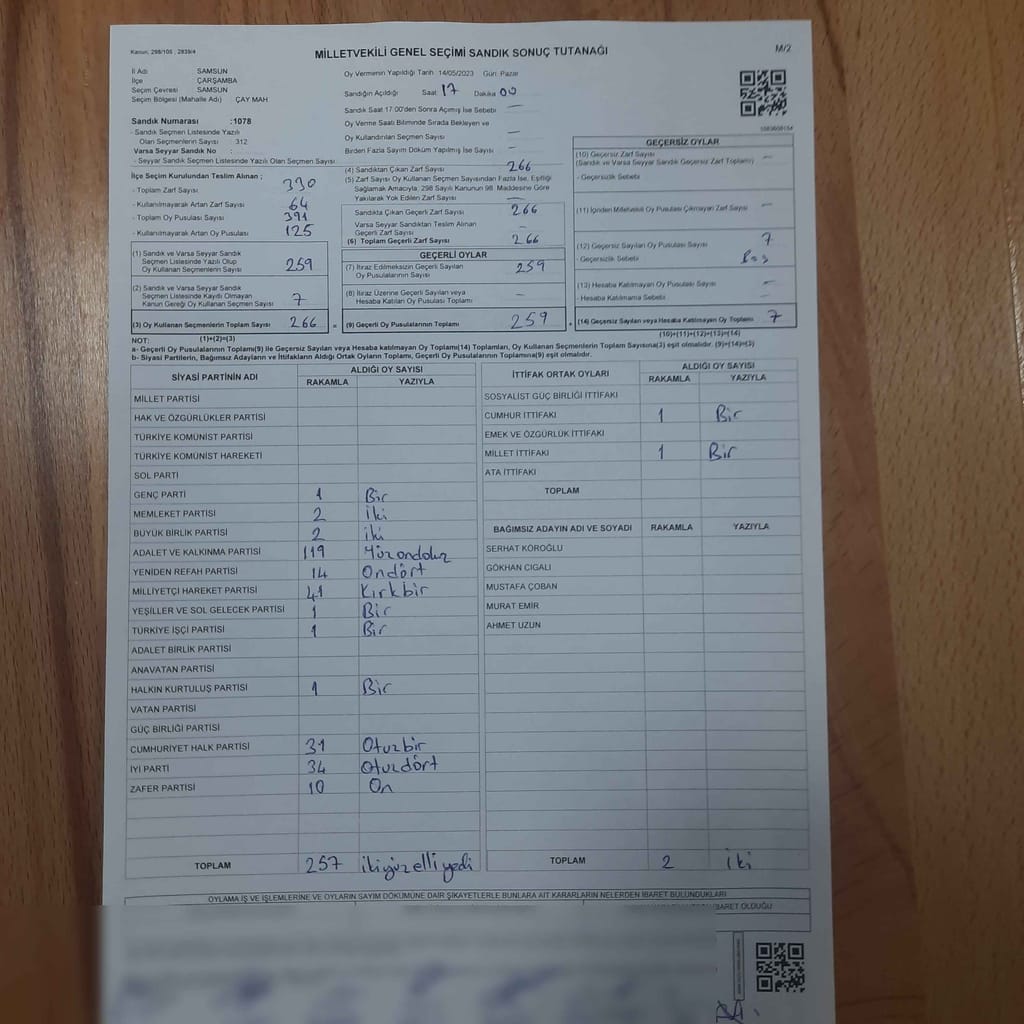 Kanun, 298/105 , 2839/4
MİLLETVEKİLİ GENEL SEÇİMİ SANDIK SONUÇ TUTANAĞI
M/2
İl Adı SAMSUN
İlçe ÇARŞAMBA
Seçim Çevresi SAMSUN
Seçim Bölgesi (Mahalle Adı) ÇAY MAH
Sandık Numarası :1078
- Sandık Seçmen Listesinde Yazılı
Olan Seçmenlerin Sayısı 312
Varsa Seyyar Sandık No :
- Seyyar Sandık Seçmen Listesinde Yazılı Olan Seçmen Sayısı
Oy Vermenin Yapıldığı Tarih 14/05/2023 Gün: Pazar
Sandığın Açıldığı Saat 17 Dakika 00
Sandık Saat 17.00'den Sonra Açımış İse Sebebi —
Oy Verme Saati Bitiminde Sırada Bekleyen ve
Oy Kullandırılan Seçmen Sayısı —
Birden Fazla Sayım Döküm Yapılmış İse Sayısı —
İlçe Seçim Kurulundan Teslim Alınan ;
- Toplam Zarf Sayısı 330
- Kullanılmayarak Artan Zarf Sayısı 64
- Toplam Oy Pusulası Sayısı 391
- Kullanılmayarak Artan Oy Pusulası 125
(1) Sandık ve Varsa Seyyar Sandık
Seçmen Listesinde Yazılı Olup
Oy Kullanan Seçmenlerin Sayısı 259
(2) Sandık ve Varsa Seyyar Sandık
Seçmen Listesinde Kayıtlı Olmayan
Kanun Gereği Oy Kullanan Seçmen Sayısı 7
(3) Oy Kullanan Seçmenlerin Toplam Sayısı 266
(4) Sandıktan Çıkan Zarf Sayısı 266
(5) Zarf Sayısı Oy Kullanan Seçmen Sayısından Fazla İse, Eşitliği
Sağlamak Amacıyla, 298 Sayılı Kanunun 98. Maddesine Göre
Yakılarak Yok Edilen Zarf Sayısı —
Sandıkta Çıkan Geçerli Zarf Sayısı 266
Varsa Seyyar Sandıktan Teslim Alınan
Geçerli Zarf Sayısı —
(6) Toplam Geçerli Zarf Sayısı 266
GEÇERLİ OYLAR
(7) İtiraz Edilmeksizin Geçerli Sayılan
Oy Pusulalarının Sayısı 259
(8) İtiraz Üzerine Geçerli Sayılan veya
Hesaba Katılan Oy Pusulası Toplamı —
= (9) Geçerli Oy Pusulalarının Toplamı 259
GEÇERSİZ OYLAR
(10) Geçersiz Zarf Sayısı —
(Sandık ve Varsa Seyyar Sandık Geçersiz Zarf Toplamı)
- Geçersizlik Sebebi
(11) İçinden Milletvekili Oy Pusulası Çıkmayan Zarf Sayısı —
(12) Geçersiz Sayılan Oy Pusulası Sayısı 7
- Geçersizlik Sebebi Boş
(13) Hesaba Katılmayan Oy Pusulası Sayısı —
- Hesaba Katılmama Sebebi —
+ (14) Geçersiz Sayılan veya Hesaba Katılmayan Oy Toplamı 7
NOT: (1)+(2)=(3) (10)+(11)+(12)+(13)=(14)
a- Geçerli Oy Pusulaları Toplamı(9) ile Geçersiz Sayılan veya Hesaba katılmayan Oy Toplamı(14) Toplamları, Oy Kullanan Seçmenlerin Toplam Sayısına(3) eşit olmalıdır. (9)+(14)=(3)
b- Siyasi Partilerin, Bağımsız Adayların ve İttifakların Aldığı Ortak Oyların Toplamı, Geçerli Oy Pusulalarının Toplamına(9) eşit olmalıdır.
SİYASİ PARTİNİN ADI ALDIĞI OY SAYISI
RAKAMLA YAZIYLA
MİLLET PARTİSİ
HAK VE ÖZGÜRLÜKLER PARTİSİ
TÜRKİYE KOMÜNİST PARTİSİ
TÜRKİYE KOMÜNİST HAREKETİ
SOL PARTİ
GENÇ PARTİ 1 Bir
MEMLEKET PARTİSİ 2 İki
BÜYÜK BİRLİK PARTİSİ 2 iki
ADALET VE KALKINMA PARTİSİ 119 Yüzondokuz
YENİDEN REFAH PARTİSİ 14 Ondört
MİLLİYETÇİ HAREKET PARTİSİ 41 Kırkbir
YEŞİLLER VE SOL GELECEK PARTİSİ 1 Bir
TÜRKİYE İŞÇİ PARTİSİ 1 Bir
ADALET BİRLİK PARTİSİ
ANAVATAN PARTİSİ
HALKIN KURTULUŞ PARTİSİ 1 Bir
VATAN PARTİSİ
GÜÇ BİRLİĞİ PARTİSİ
CUMHURİYET HALK PARTİSİ 31 Otuzbir
İYİ PARTİ 34 Otuzdört
ZAFER PARTİSİ 10 On
TOPLAM 257 ikiyüzelliyedi
İTTİFAK ORTAK OYLARI ALDIĞI OY SAYISI
RAKAMLA YAZIYLA
SOSYALİST GÜÇ BİRLİĞİ İTTİFAKI
CUMHUR İTTİFAKI 1 Bir
EMEK VE ÖZGÜRLÜK İTTİFAKI
MİLLET İTTİFAKI 1 Bir
ATA İTTİFAKI
TOPLAM
BAĞIMSIZ ADAYIN ADI VE SOYADI RAKAMLA YAZIYLA
SERHAT KÖROĞLU
GÖKHAN CIGALI
MUSTAFA ÇOBAN
MURAT EMİR
AHMET UZUN
TOPLAM 2 iki
OYLAMA İŞ VE İŞLEMLERİNE VE OYLARIN SAYIM DÖKÜMÜNE DAİR ŞİKAYETLERLE BUNLARA AİT KARARLARIN NELERDEN İBARET BULUNDUKLARI
İBARET OLDUĞU